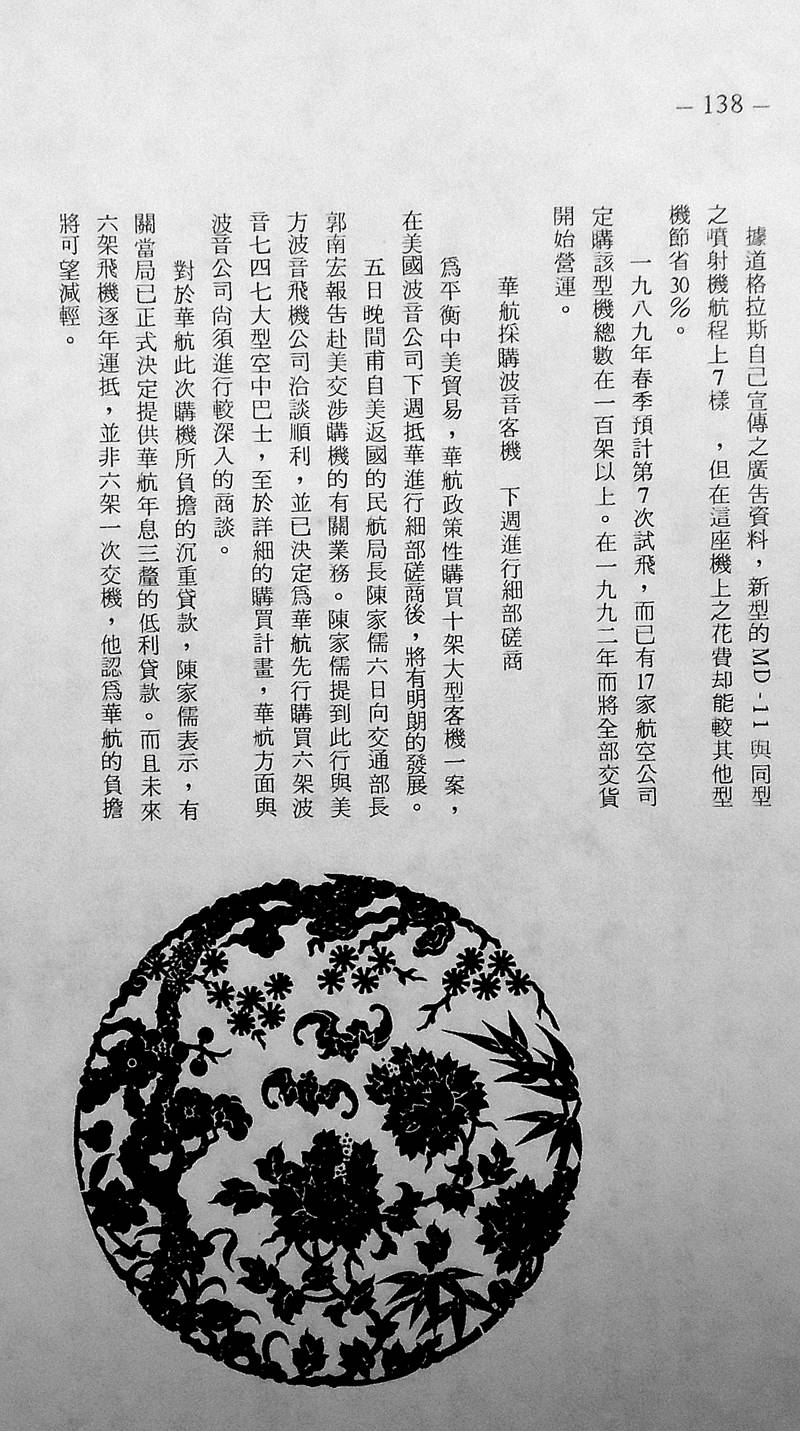 — 138 —
據道格拉斯自己宣傳之廣告資料，新型的MD-11與同型
之噴射機航程上7樣　，但在這座機上之花費却能較其他型
機節省30％。
一九八九年春季預計第7次試飛，而已有17家航空公司
定購該型機總數在一百架以上。在一九九二年而將全部交貨
開始營運。
華航採購波音客機　下週進行細部磋商
爲平衡中美貿易，華航政策性購買十架大型客機一案，
在美國波音公司下週抵華進行細部磋商後，將有明朗的發展。
五日晚間甫自美返國的民航局長陳家儒六日向交通部長
郭南宏報告赴美交涉購機的有關業務。陳家儒提到此行與美
方波音飛機公司洽談順利，並已決定爲華航先行購買六架波
音七四七大型空中巴士，至於詳細的購買計畫，華航方面與
波音公司尚須進行較深入的商談。
對於華航此次購機所負擔的沉重貸款，陳家儒表示，有
關當局已正式決定提供華航年息三釐的低利貸款。而且未來
六架飛機逐年運抵，並非六架一次交機，他認爲華航的負擔
將可望減輕。